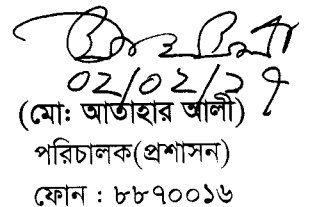 ০২/০২/১৭
(মো: আতাহার আলী)
পরিচালক(প্রশাসন)
ফোন : ৮৮৭০০১৬